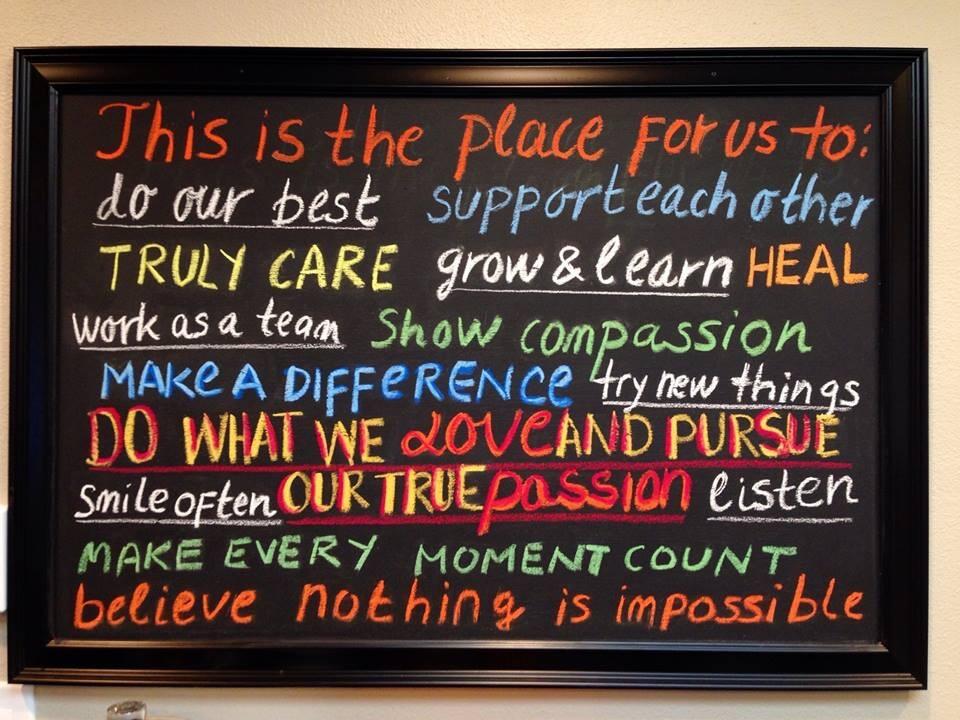 This is the place for us to:
do our best support each other
TRULY CARE grow & learn HEAL
work as a team Show compassion
MAKe A DIFFeRENCe try new things
DO WHAT WE LOVe AND PURSUE
Smile often OUR TRUE passion listen
MAKE EVERY MOMENT COUNT
believe nothing is impossible